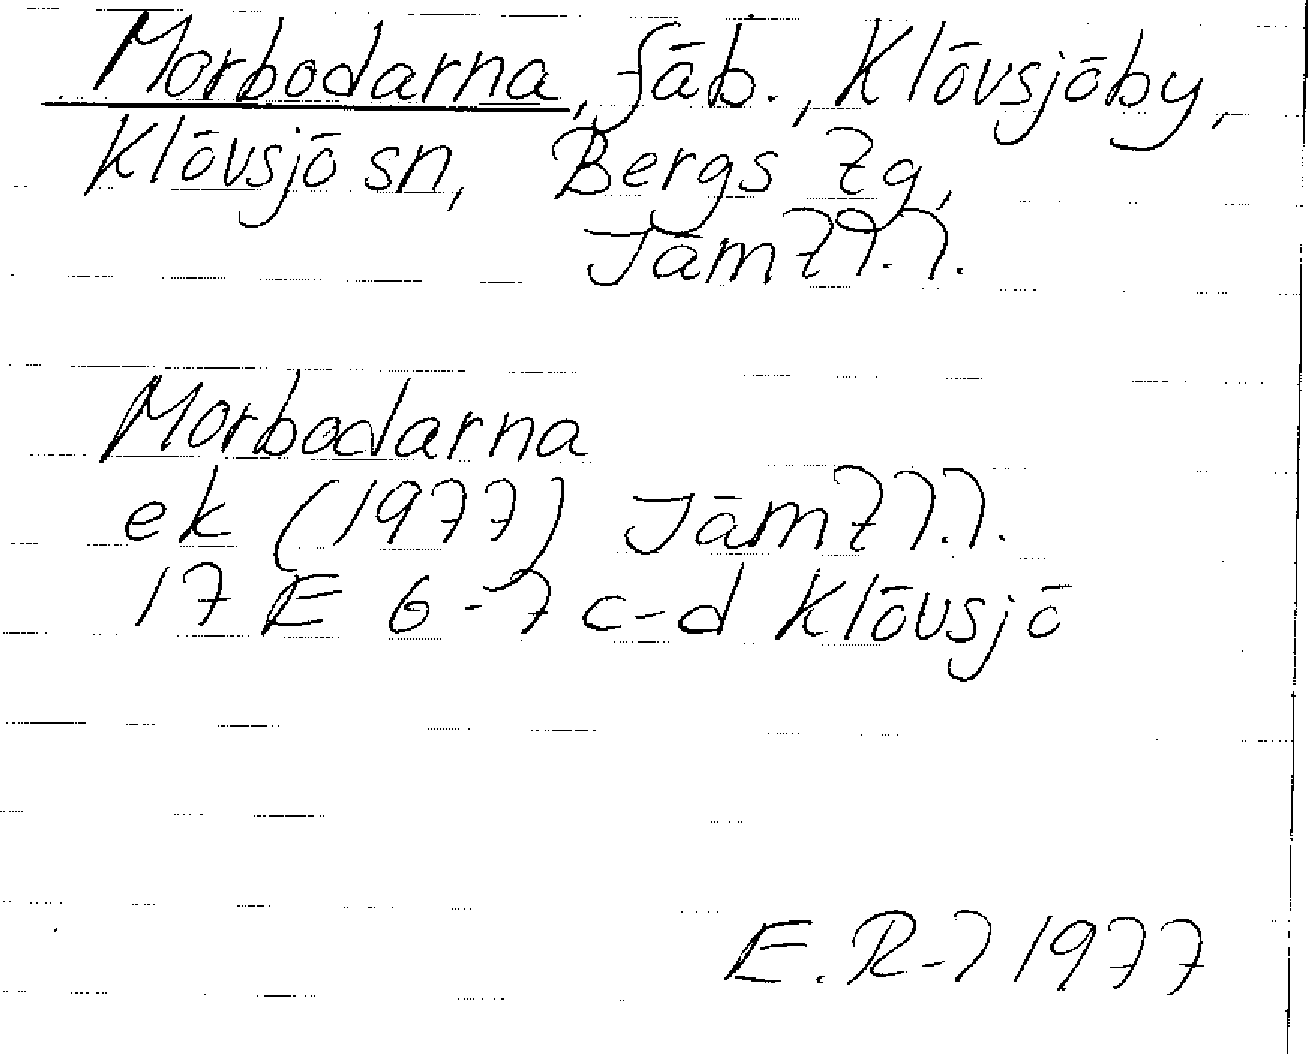 Morbodarna, fäb., Klövsjöby,
Klövsjö sn, Bergs tg,
Jämtl.l.
Morbodarna
ek (1977) Jämtl.l.
17 E 6-7 c-d Klövsjö
E. R-l 1977